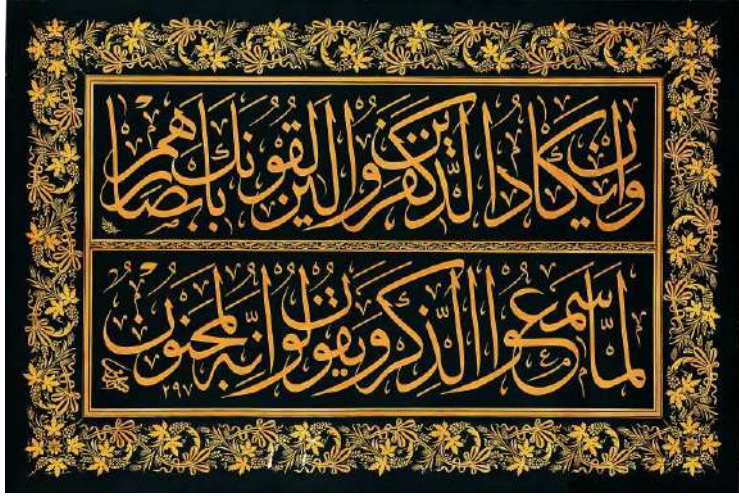 وان يكاد الذين كفروا ليزلقونك بابصارهم
لما سمعوا الذكر ويقولون انه لمجنون
٢٩٧